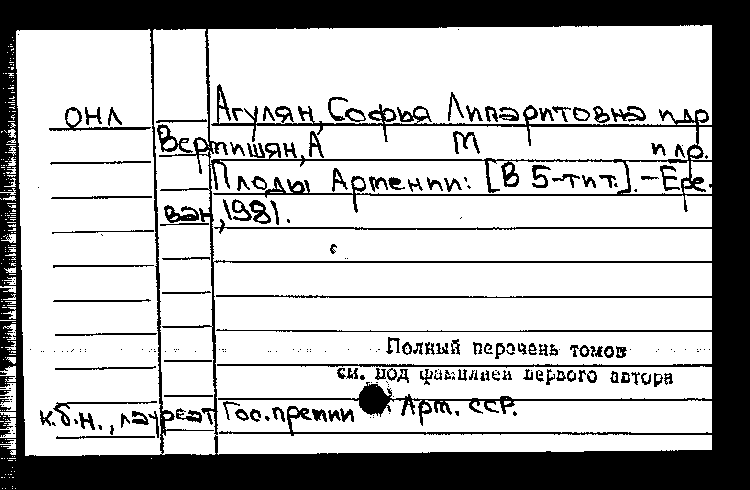 ОНЛ Агулян, Софья Липаритовна и др
Вермишян, А М и др.
Плоды Армении: [В 5-ти т.]. – Ере-
ван, 1981.
Полный перечень томов
см. под фамилией первого автора
к.б.н., лауреат Гос. премии Арм. ССР.